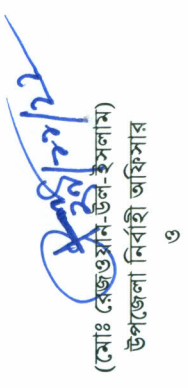 (মোঃ রেজওয়ান-উল-ইসলাম)
উপজেলা নির্বাহী অফিসার
ও